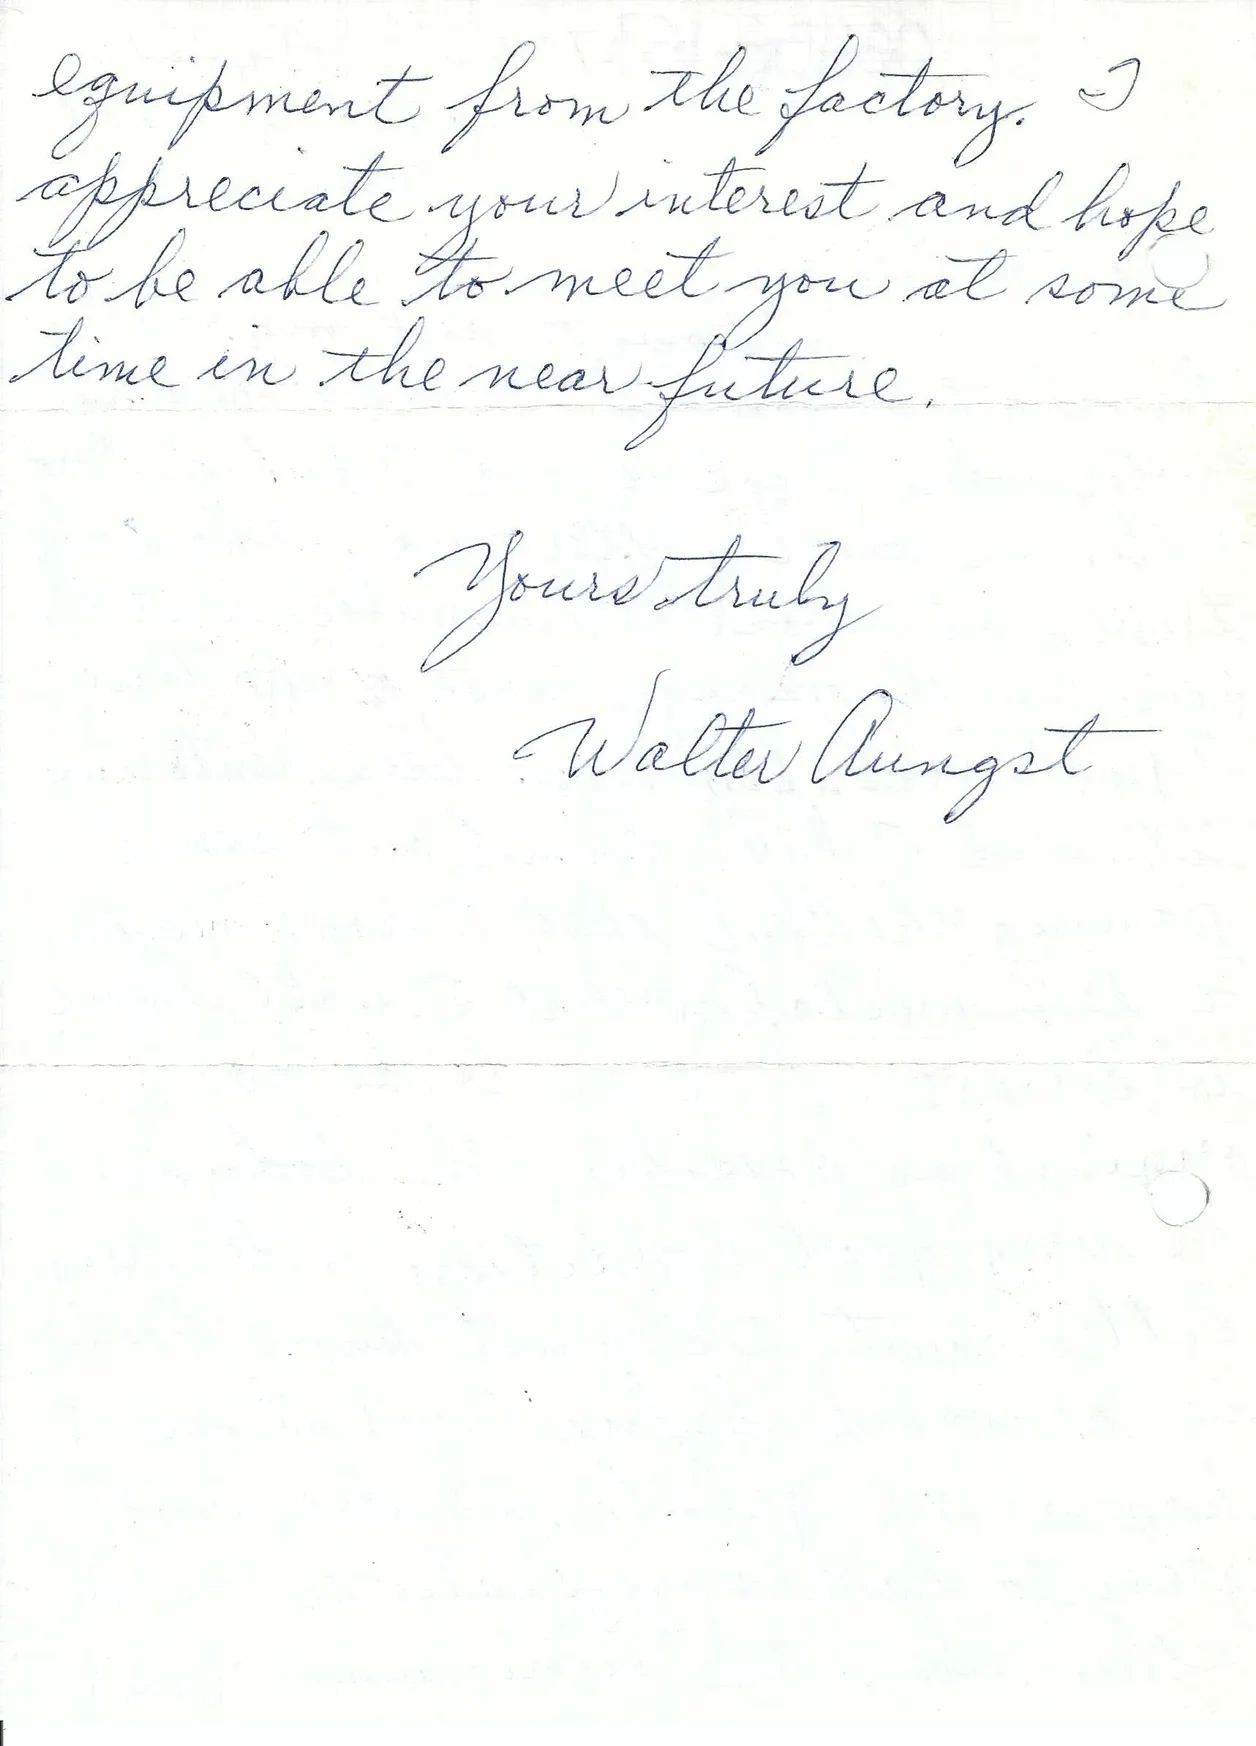 equipment from the factory. I
appreciate your interest and hope
to be able to meet you at some
time in the near future.
Yours truly
Walter Aungst